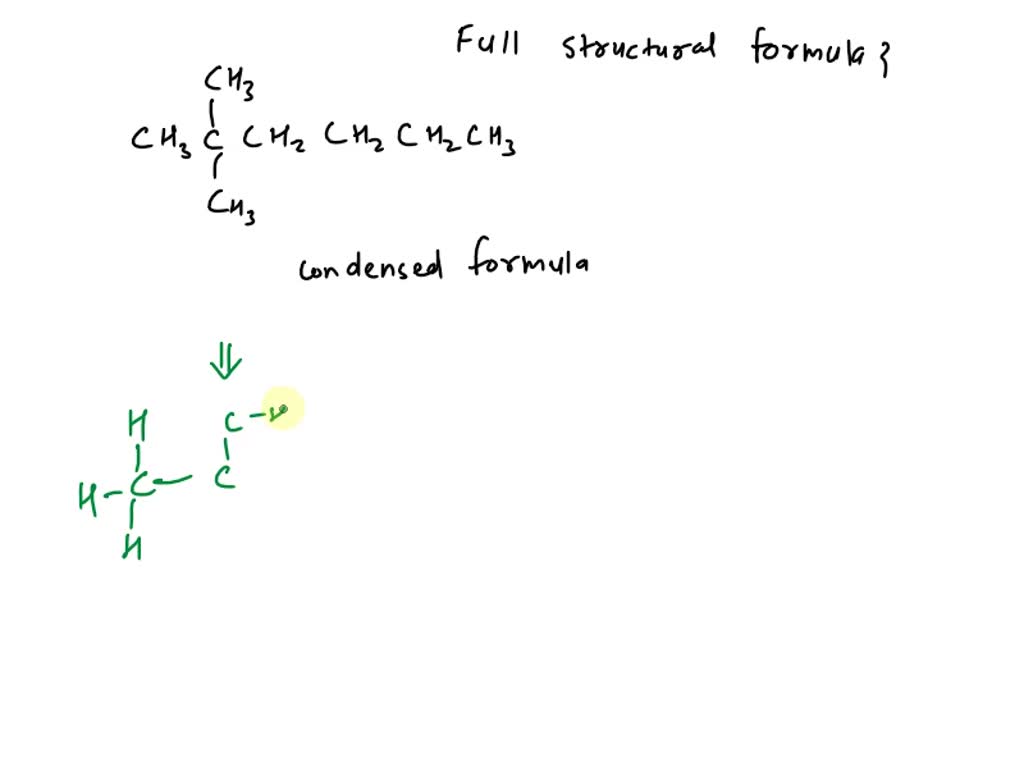 Full structural formula ?
CH3
CH3 C CH2 CH2 CH2 CH3
CH3
condensed formula
H C –
H – C – C
H